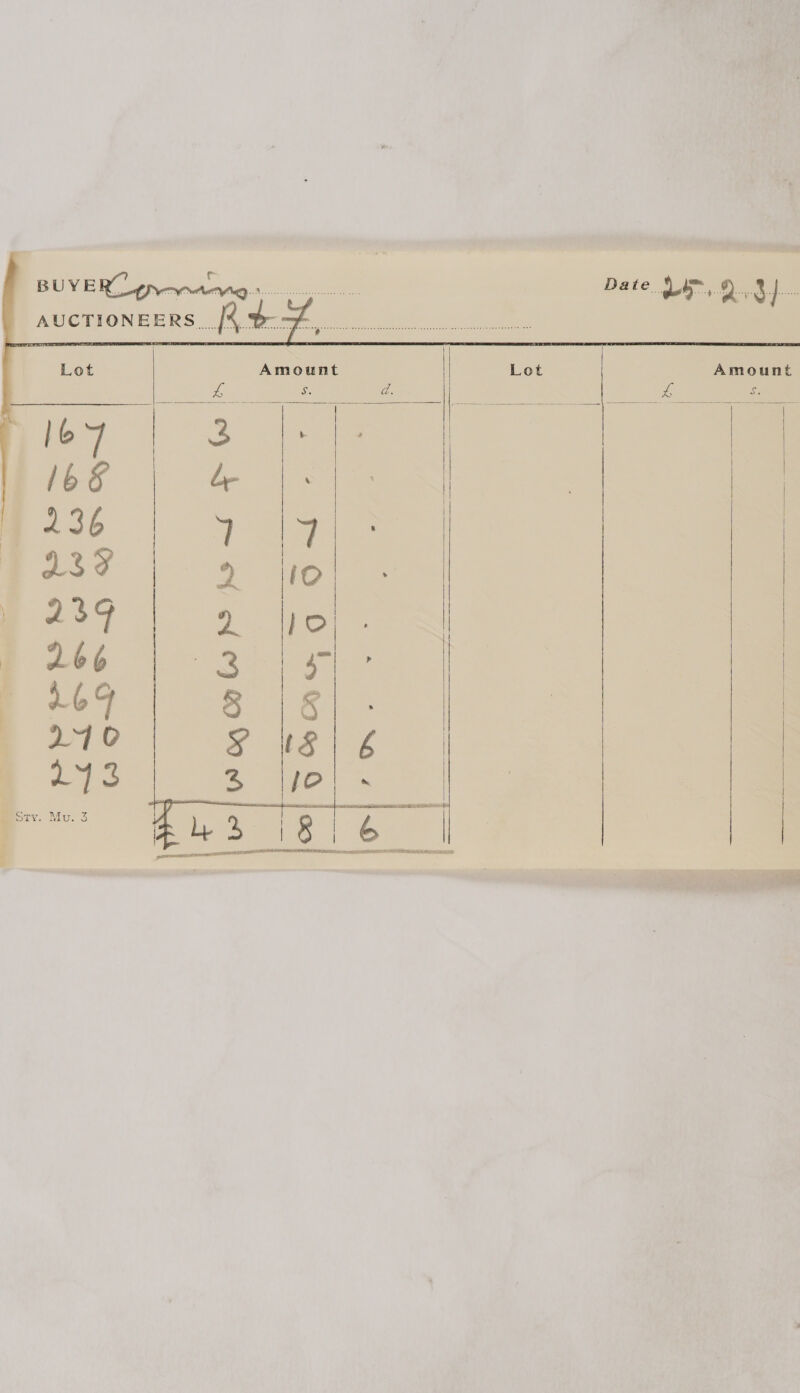 BUYER Comyng. Date 25.2.31
AUCTIONEERS R & F.
Lot Amount Lot Amount
£ s. d. £ s.
167 3 . .
168 4 . .
236 7 7 .
238 2 10 .
239 2 10 .
266 3 5 .
269 8 8 .
270 8 18 6
273 3 10 .
Stv. Mu. 3 £43 8 6